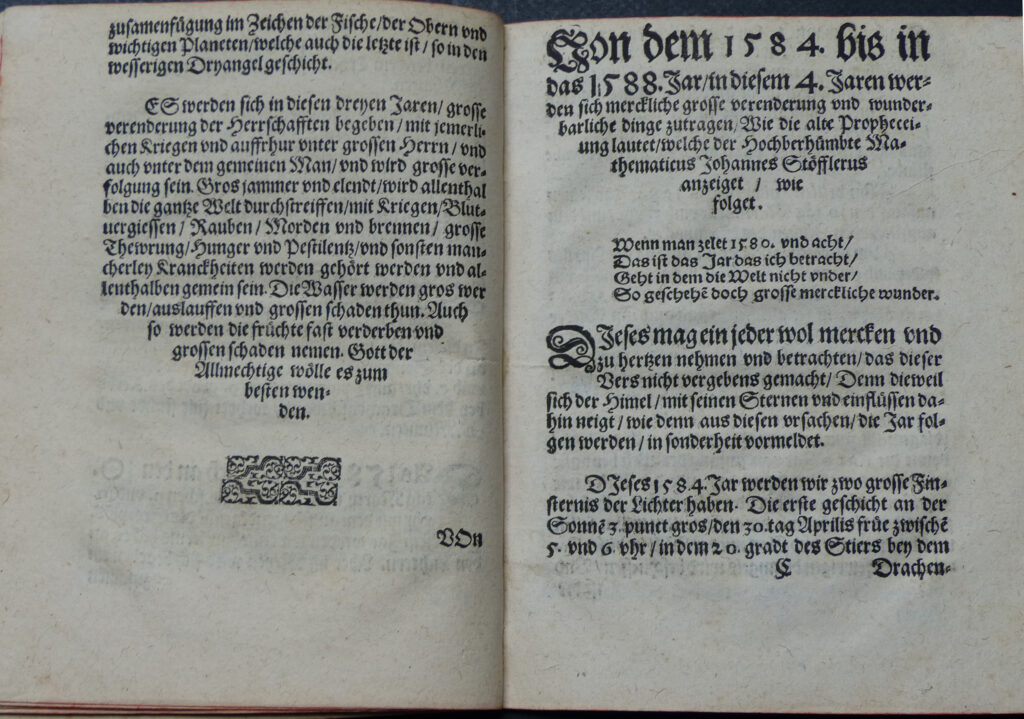 zusamenfügung im Zeichen der Fische/der Obern vnd
wichtigen Planeten/welche auch die letzte ist/ so in den
wesserigen Dryangel geschicht.
ES werden sich in diesen dreyen Jaren/ grosse
verenderung der Herrschafften begeben/ mit jemerli-
chen Kriegen vnd auffrhur vnter grossen Herrn/ vnd
auch vnter dem gemeinen Man/ vnd wird grosse ver-
folgung sein. Gros jammer vnd elendt/wird allenthal
ben die gantze Welt durchstreiffen/mit Kriegen/Blut-
uergiessen/ Rauben/ Morden vnd brennen/ grosse
Thewrung/Hunger vnd Pestilentz/vnd sonsten man-
cherley Kranckheiten werden gehört werden vnd al-
lenthalben gemein sein. Die Wasser werden gros wer
den/auslauffen vnd grossen schaden thun. Auch
so werden die früchte fast verderben vnd
grossen schaden nemen. Gott der
Allmechtige wölle es zum
besten wen-
den.
VOn
Von dem 1584. bis in
das 1588. Jar/in diesem 4. Jaren wer-
den sich merckliche grosse verenderung vnd wunder-
barliche dinge zutragen/ Wie die alte Prophecei-
ung lautet/welche der Hochberhümbte Ma-
thematicus Johannes Stöfflerus
anzeiget / wie
folget.
Wenn man zelet 1580. vnd acht/
Das ist das Jar das ich betracht/
Geht in dem die Welt nicht vnder/
So geschehẽ doch grosse merckliche wunder.
DIeses mag ein jeder wol mercken vnd
zu hertzen nehmen vnd betrachten/das dieser
Vers nicht vergebens gemacht/ Denn dieweil
sich der Himel/mit seinen Sternen vnd einflüssen da-
hin neigt/wie denn aus diesen vrsachen/die Jar fol-
gen werden/in sonderheit vormeldet.
DIeses 1584. Jar werden wir zwo grosse Fin-
sternis der Lichter haben. Die erste geschicht an der
Sonnẽ 3. punct gros/den 30. tag Aprilis früe zwischẽ
5. vnd 6. vhr/in dem 20. gradt des Stiers bey dem
C Drachen-